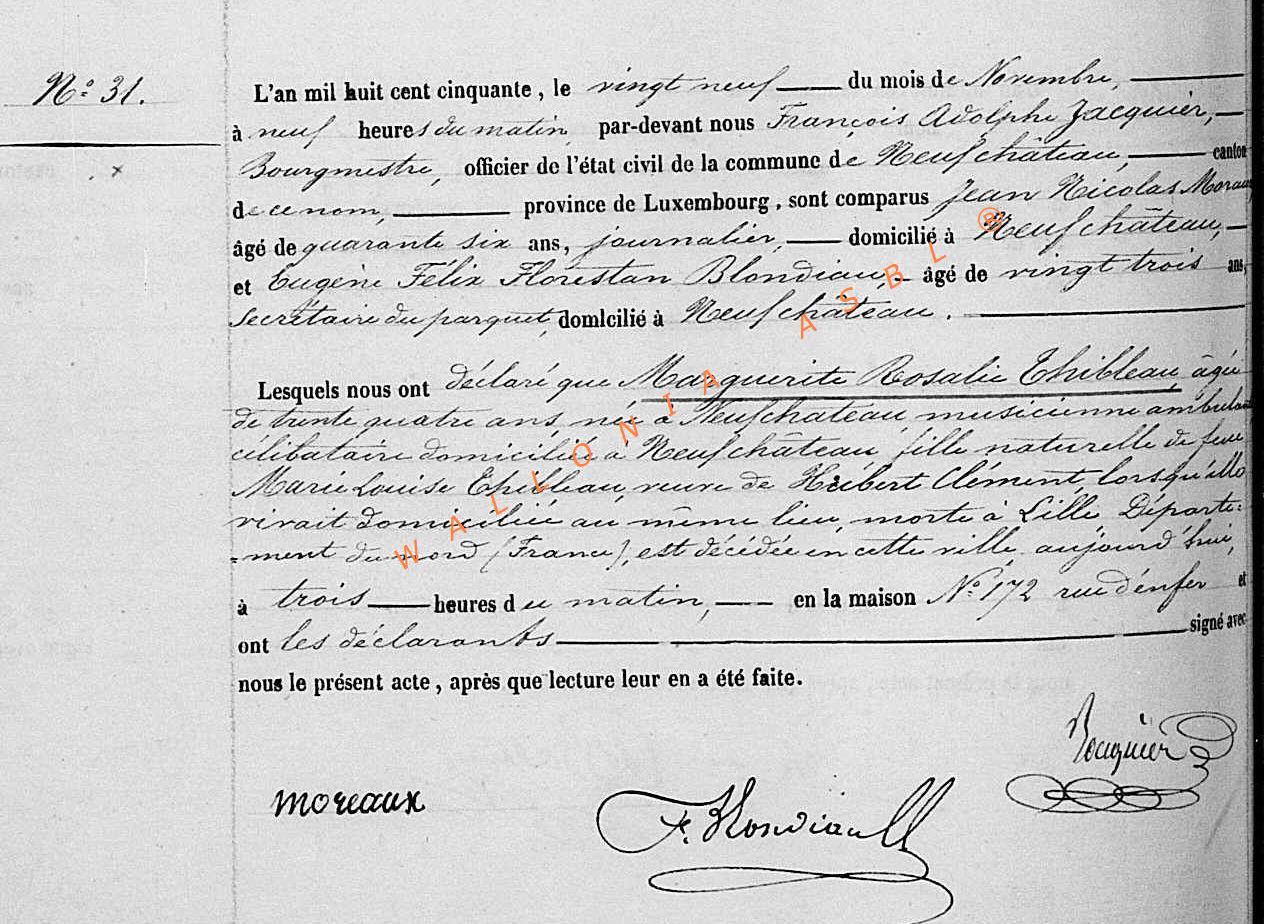 N° 31.
L'an mil huit cent cinquante, le vingt neuf du mois de Novembre,
à neuf heures du matin, par-devant nous François Adolphe Jacquier,
Bourgmestre, officier de l'état civil de la commune de Neufchâteau, canton
de ce nom, province de Luxembourg, sont comparus Jean Nicolas Moraux
âgé de quarante six ans, journalier, domicilié à Neufchâteau,
et Eugène Félix Florestan Blondiau, âgé de vingt trois ans,
secrétaire du parquet, domicilié à Neufchâteau.
Lesquels nous ont déclaré que Marguerite Rosalie Thibleau, âgée
de trente quatre ans, née à Neufchateau, musicienne ambulante
célibataire domiciliée à Neufchâteau, fille naturelle de feue
Marie Louise Thibleau, veuve de Hubert Clément, lorsqu'elle
vivait domiciliée au même lieu, morte à Lille Départe=
=ment du nord (France), est décédée en cette ville aujourd'hui,
à trois heures du matin, en la maison N° 172 rue d'enfer et
ont les déclarants signé avec
nous le présent acte, après que lecture leur en a été faite.
Jacquier
moreaux
F. Blondiau
WALLONIA ASBL ®